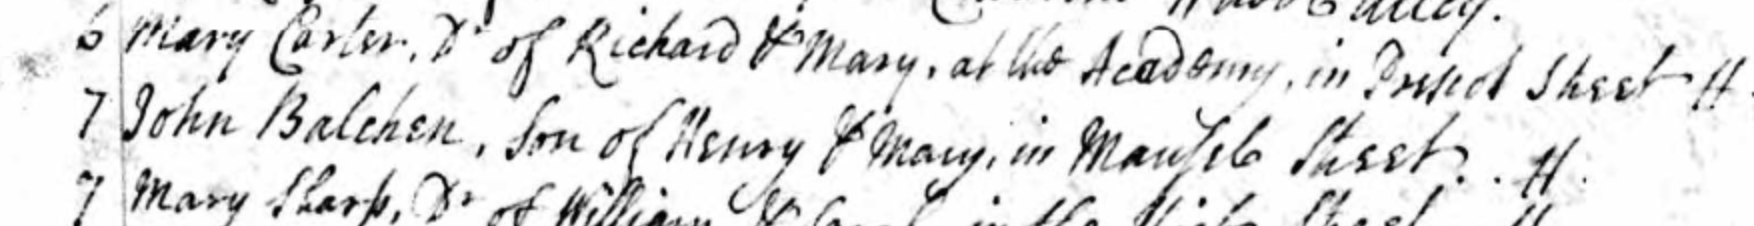 Alley.
6 Mary Carter, Dr of Richard & Mary, at the Academy, in Prescot Street H.
7 John Balchen, Son of Henry & Mary, in Mansel Street. . H.
7 Mary Sharp, Dr of William & Sarah in the High Street H